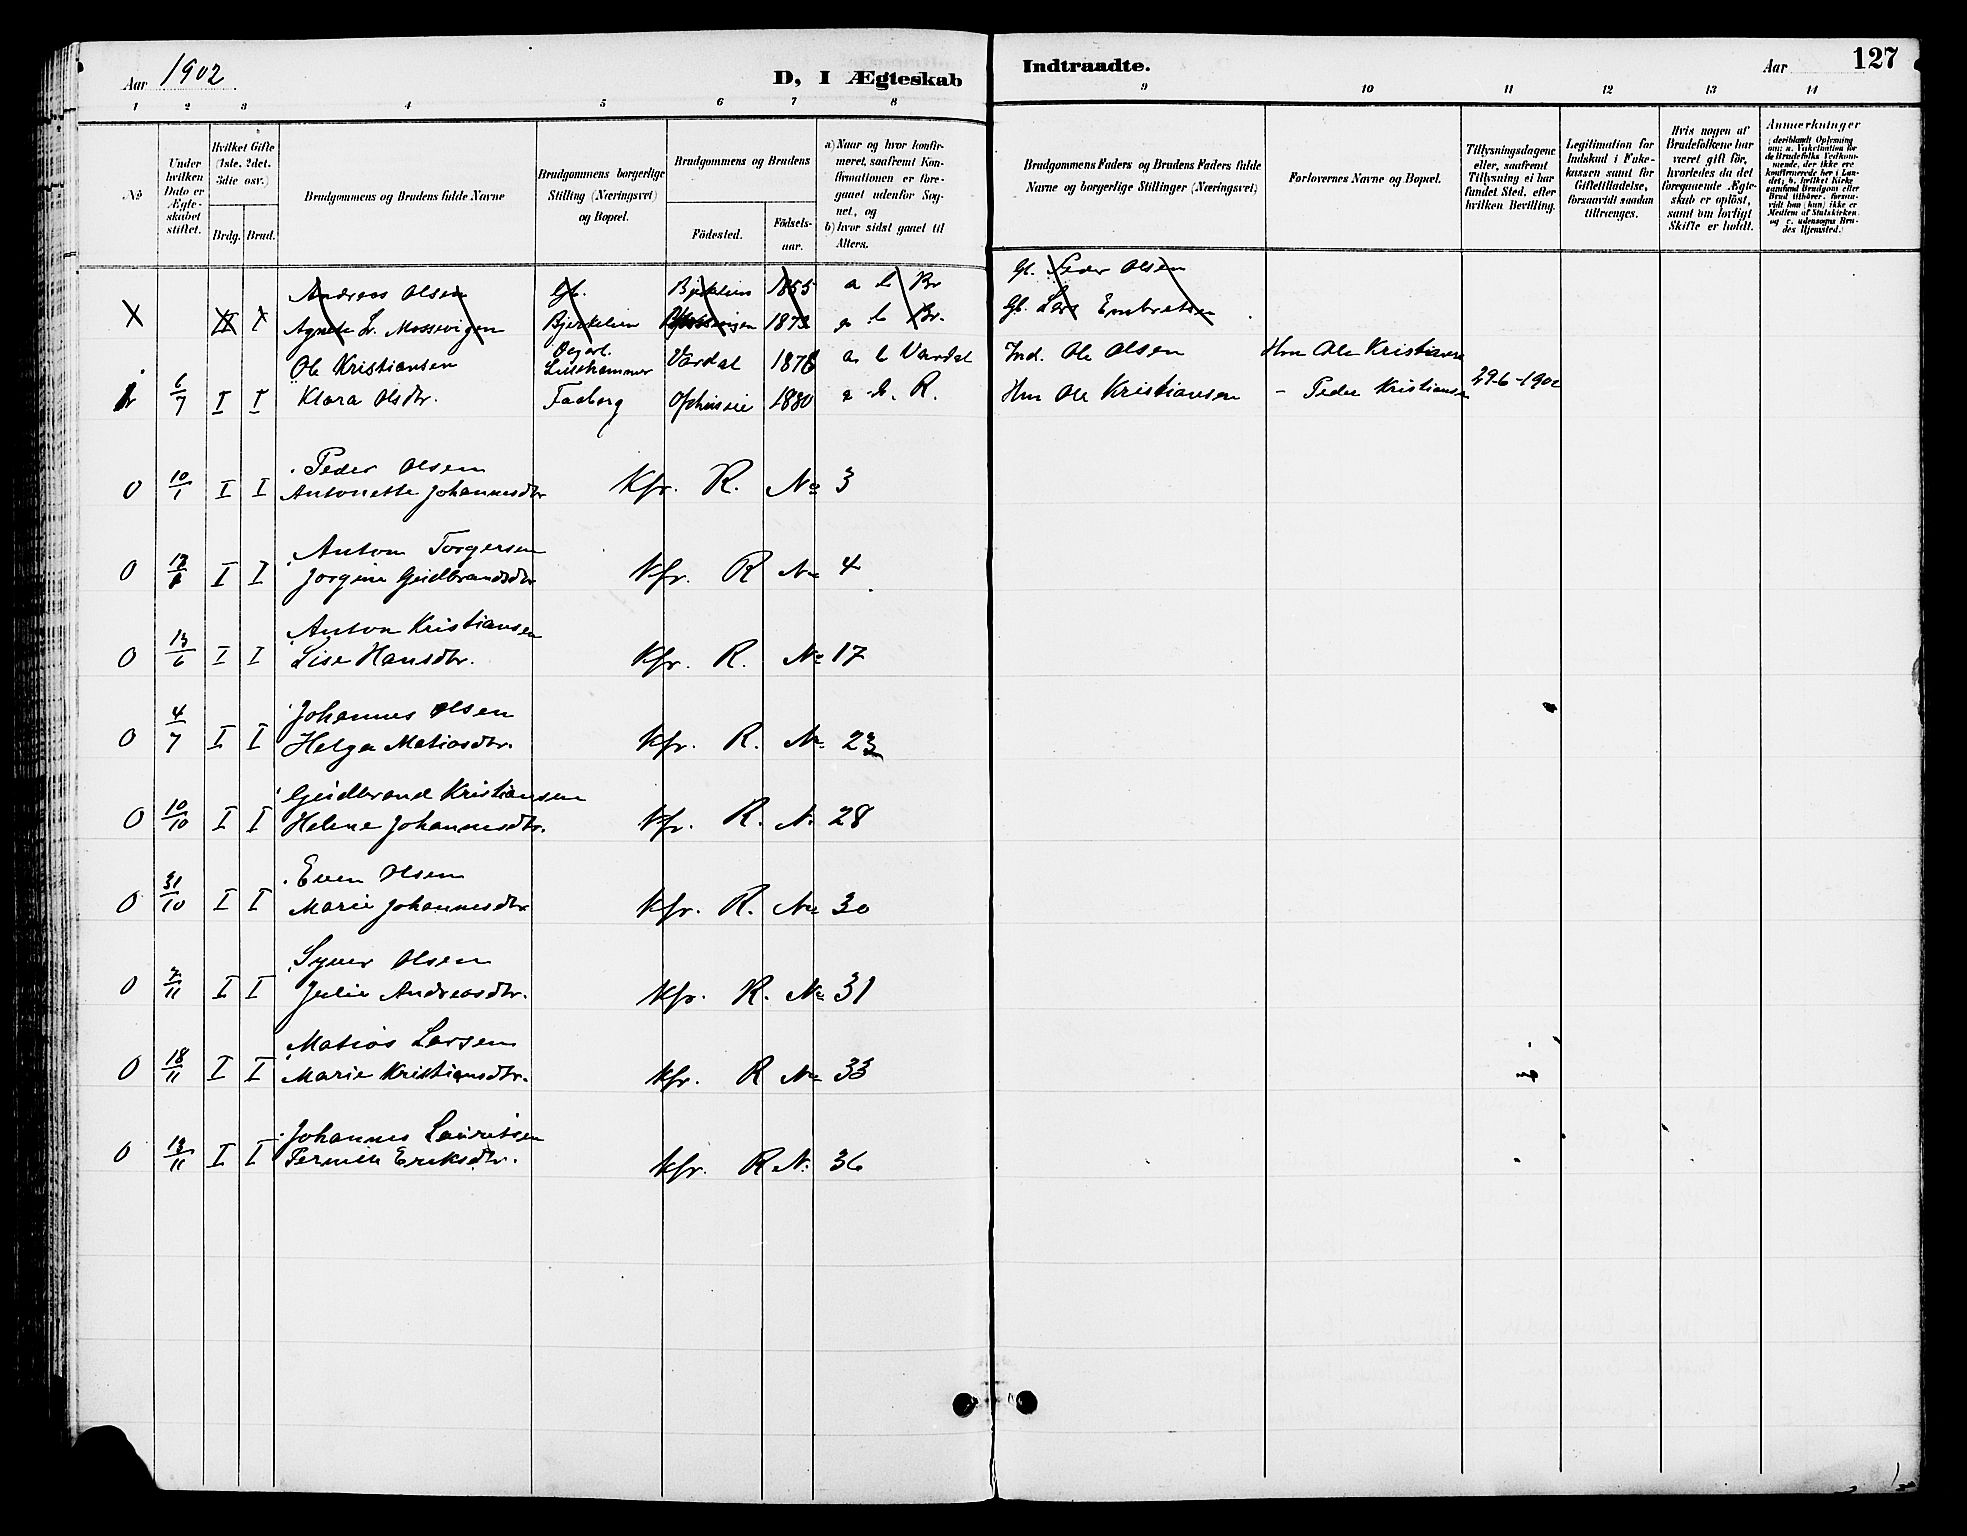 Aar 1902
D, I Ægteskab
Indtraadte.
Aar
127
1 2 3 4 5 6 7 8 9 10 11 12 13 14
No
Under
hvilken
Dato er
Ægte-
skabet
stiftet.
Hvilket Gifte
(1ste, 2det,
3die osv.)
Brdg. Brud.
Brudgommens og Brudens fulde Navne
Brudgommens borgerlige
Stilling (Næringsvei)
og Bopæl.
Brudgommens og Brudens
Fødested.
Fødsels-
aar.
a) Naar og hvor konfir-
meret, saafremt Kon-
firmationen er fore-
gaaet udenfor Sog-
net, og
b) hvor sidst gaaet til
Alters.
Brudgommens Faders og Brudens Faders fulde
Navne og borgerlige Stillinger (Næringsvei)
Forlovernes Navne og Bopæl.
Tillysningsdagene
eller, saafremt
Tillysning ei har
fundet Sted, efter
hvilken Bevilling.
Legitimation for
Indskud i Enke-
kassen samt for
Giftetilladelse,
forsaavidt saadan
tiltrænges.
Hvis nogen af
Brudefolkene har
været gift før,
hvorledes da det
foregaaende Ægte-
skab er opløst,
samt om lovligt
Skifte er holdt.
Anmærkninger
(deriblandt Oplysning
om: a. Vakcination for
de Brudefolks Vedkom-
mende, der ikke ere
konfirmerede her i Lan-
det; b. hvilket Kirke-
samfund Brudgom eller
Brud tilhører, forsaa-
vidt han (hun) ikke er
Medlem af Statskirken,
og c. udensogns Bru-
des Hjemsted.)
Andreas Olsen Gb. Bjerkelien 1855 a b Br Gb. Peder Olsen
X II I Agnete L. Mossevigen Bjerkelien 1873 a b Br. Gb. Lars Embretsen
Ole Kristiansen Lillehammer Vardal 1878 a b Vardal Ind. Ole Olsen Hm Ole Kristiansen
6/7 I I Klara Olsdtr. Faaberg 1880 a b. R. Hm Ole Kristiansen - Peder Kristiansen 29-6-1902
Peder Olsen
0 10/1 I I Antonette Johannesdtr Kfr. R. No 3
Anton Torgersen
0 I I Jorgine Gudbrandsdtr Kfr. R No 4
Anton Kristiansen
0 13/6 I I Lise Hansdtr. Kfr. R. No 17
Johannes Olsen
0 4/7 I I Helga Matiasdtr. Kfr. R. No 23
Gudbrand Kristiansen
0 10/10 I I Helene Johannesdtr. Kfr. R. N. 28
Even Olsen
0 31/10 I I Marie Johannesdtr Kfr. R. No 30
Syver Olsen
0 7/11 I I Julie Andreasdtr. Kfr. R. No 31
Matias Larsen
0 18/11 I I Marie Kristiansdtr. Kfr. R No 33
Johannes Lauritsen
0 13/11 I I Pernille Eriksdtr. Kfr. R N. 36